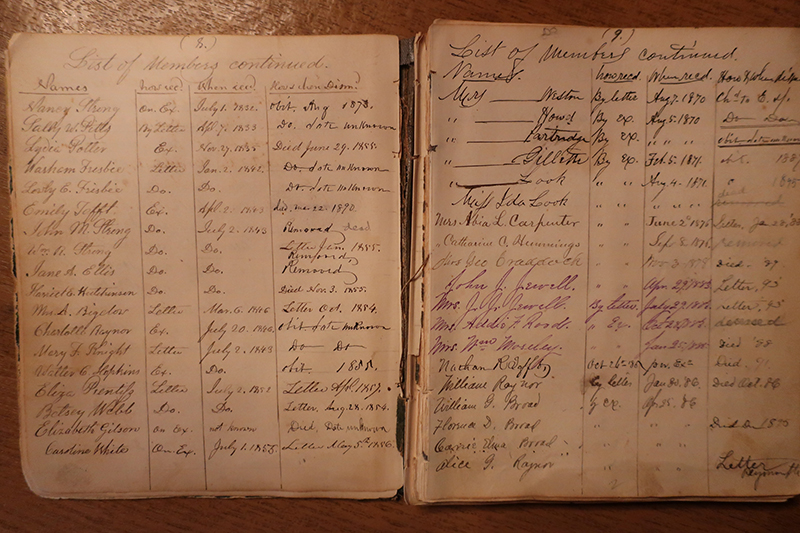 (8.)
List of Members continued.
Names how rec'd When rec'd How & when Dism'd
Nancy Strong On Ex. July 1. 1832. obit. Aug 1873.
Sally W. Pitts By Letter Apl. 7. 1833 Do. date unknown
Lydia Potter Ex. Nov. 27. 1835 Died June 29. 1855.
Warham Frisbie Letter Jan. 2. 1842. Do. date unknown
Lordy C. Frisbie Do. Do. Do. date unknown
Emily Tefft Ex. Apl. 2. 1843 22 1890
John M. Strong Do. July 2. 1843 Removed dead
Wm N. Strong Do. Do. Letter Jan. 1855.
Removed,
Jane S. Ellis Do. Do. Removed
Harriet E. Hutchinson Do. Do. Died Nov. 3. 1853.
Mrs. A. Bigelow Letter Mar. 6. 1846 Letter Oct. 1884.
Charlott Raynor Ex. July 20. 1846. obit date unknown
Mary F. Knight Letter July 2. 1848 Do Do
Walter C. Hopkins Ex. Do. obit. 1888.
Eliza Prentiss Letter July 2. 1851 Letter Apl. 1857.
Betsey Webb Do. Do. Letter, Aug. 28. 1854.
Elizabeth Gilson on Ex. not known Died, Date unknown
Caroline White On Ex. July 1. 1855. Letter May 5th 1886.
(9.)
List of Members continued.
Names. how recd. When recd. How & when
Mrs Weston By letter Aug 7. 1870 Chd To E.
" By ex. Aug 5. 1870 Do Do
" Partridge By Ex. " " obit date unknown
" Gillette By Ex. Feb. 5. 1871. ob
" Look " " Aug 4. 1871. " 1895
Miss Ida Look " " " "
Mrs. Abia L. Carpenter " " June 2d Letter, Jan
" Catharine C. Hemmings " " Sep removed
Mrs Geo Craddock " " Nov 3 Died '87
John J. Jewell " " Apr. 29, Letter, 93
Mrs. J. J. Jewell By Letter, July 29, Letter, 93
Mrs. Addie F. Roodt " Ex. deceased
Mrs. Wm Moseley. " " Jan 25, Died '88
Nathan R. Oct 26th Died,
William Raynor by letter Jan 30. 86 Died Oct. 86
William G. Broad by ex. Apr 25. 86
Florence D. Broad " " Died 1895
Carrie Broad " " "
Alice G. Raynor " " " Letter